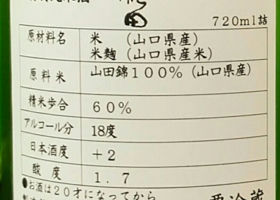 720ml詰
原材料名 米 (山口県産)
米麹 (山口県産米)
原料米 山田錦100% (山口県産)
精米歩合 60%
アルコール分 18度
日本酒度 +2
酸度 1.7
●お酒は20才になってから
要冷蔵